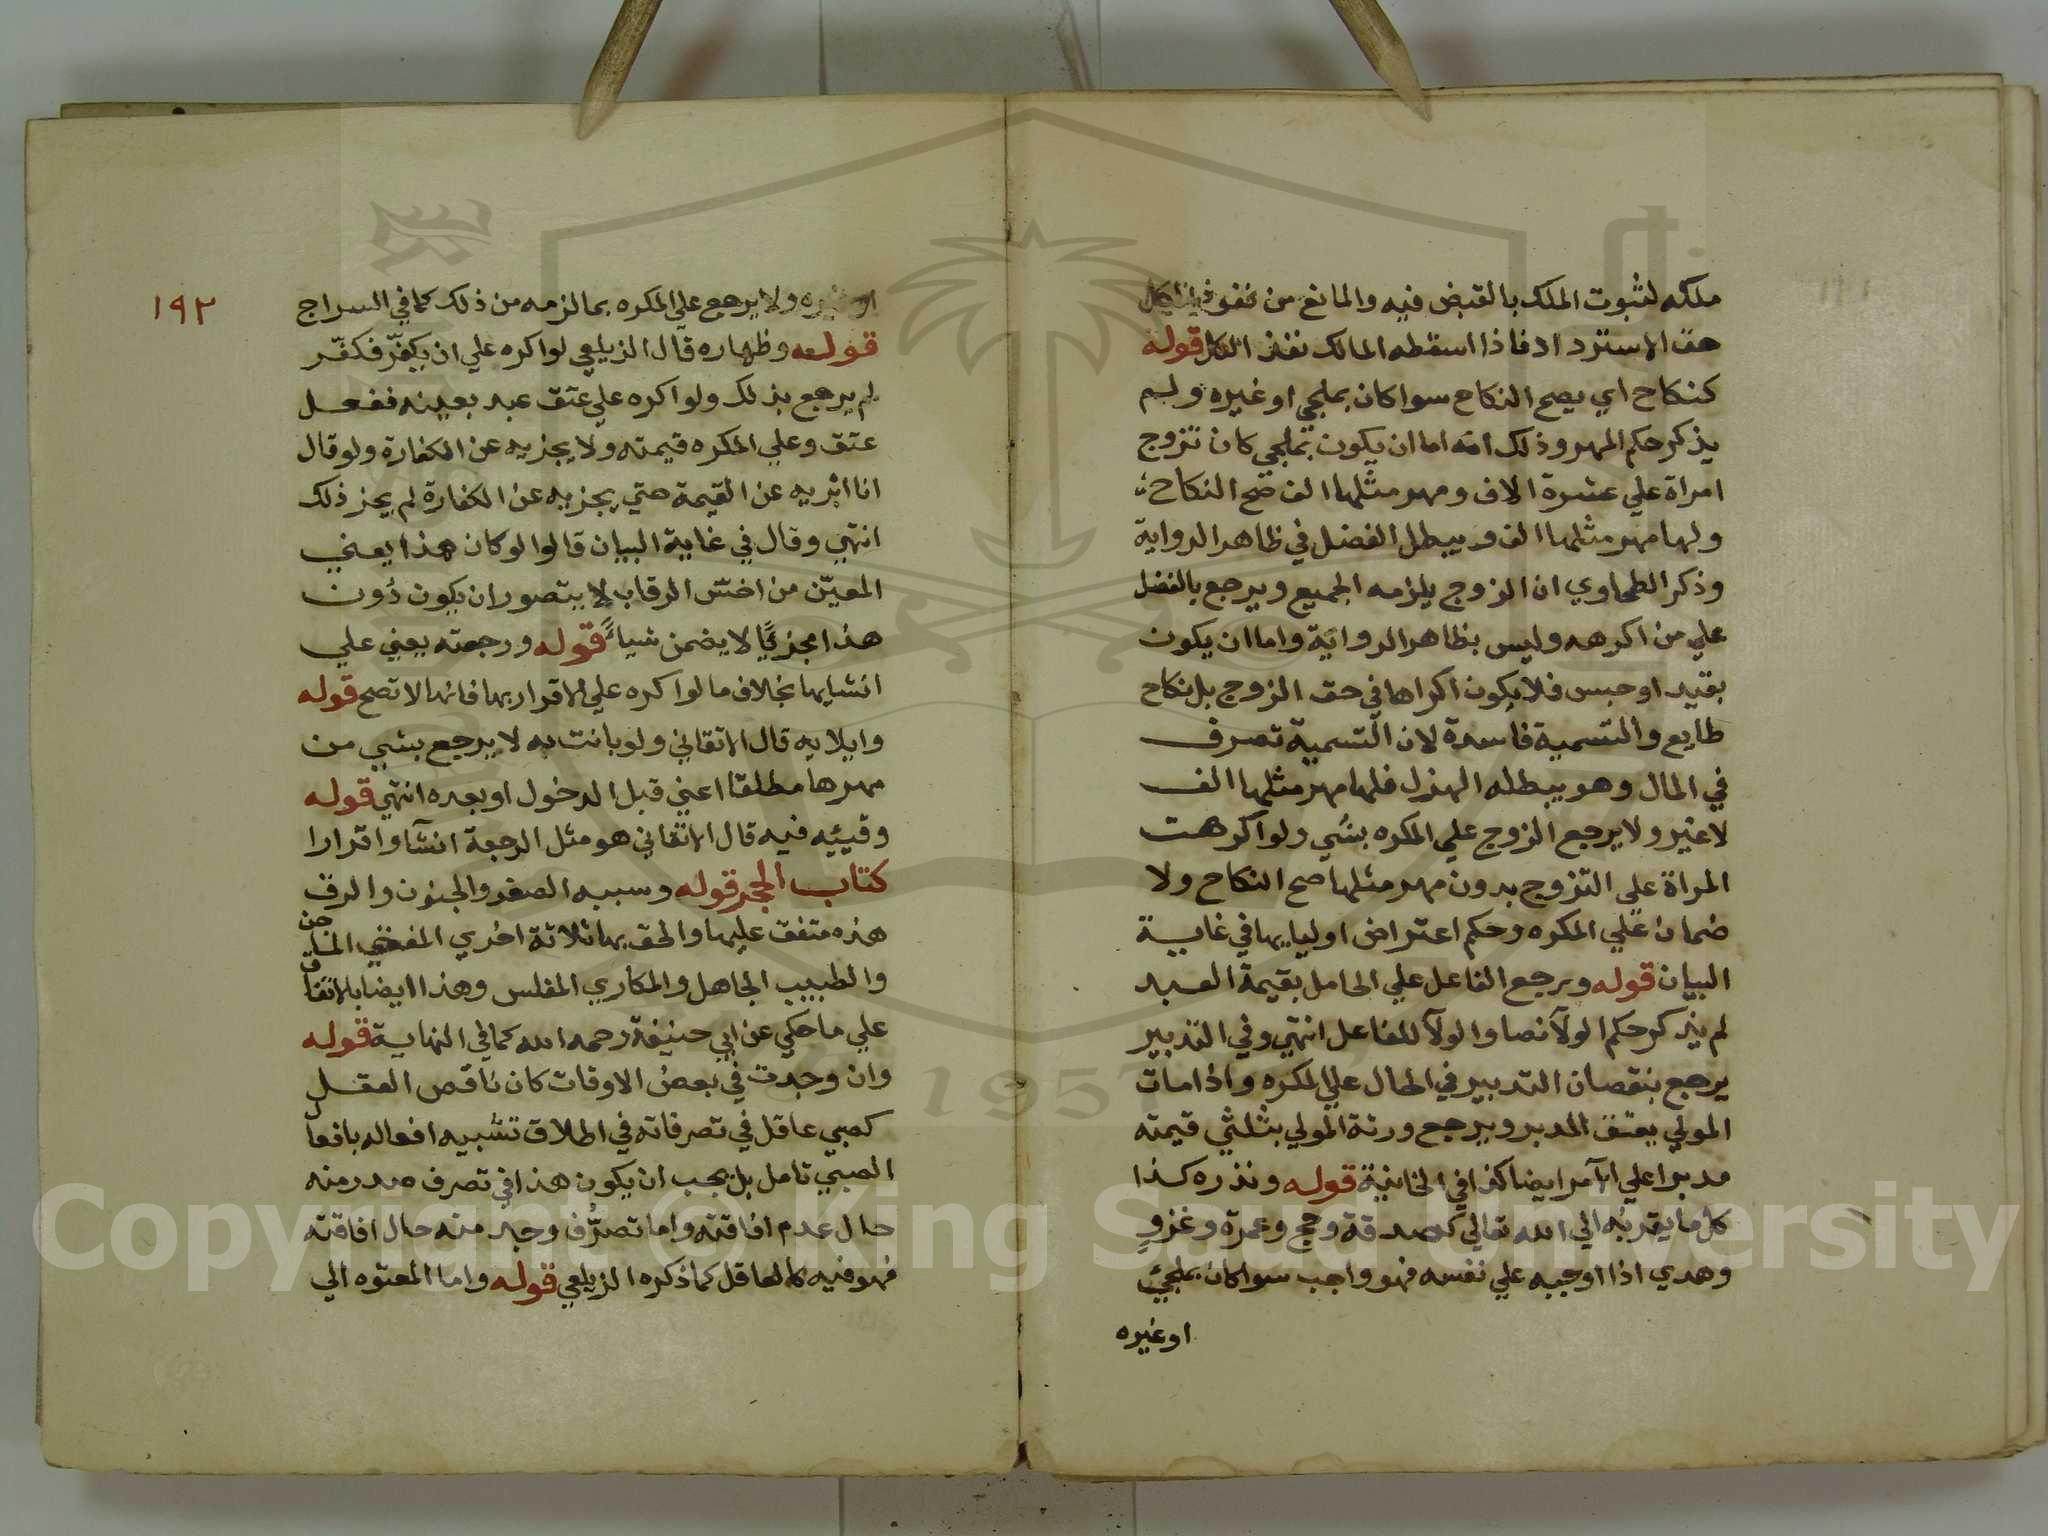 ملكه لثبوت الملك بالقبض فيه والمانع من نفوذ
حق الاسترداد فاذا اسقطه المالك نفذ الكل قوله
كنكاح اي يصح النكاح سوا كان بملجي او غيره ولم
يذكر حكم المهر وذلك انه اما ان يكون بملجي كان تزوج
امراة علي عشرة الاف ومهر مثلها الف صح النكاح
ولها مهر مثلها الف ويبطل الفضل في ظاهر الرواية
وذكر الطحاوي ان الزوج يلزمه الجميع ويرجع بالفضل
علي من اكرهه وليس بظاهر الرواية واما ان يكون
بقيد او حبس فلا يكون اكراها في حق الزوج بل نكاح
طايع والتسمية فاسدة لان التسمية تصرف
في المال وهو يبطله الهزل فلها مهر مثلها الف
لا غير ولا يرجع الزوج علي المكره بشي ولو اكرهت
المراة علي التزوج بدون مهر مثلها صح النكاح ولا
ضمان علي المكره وحكم اعتراض اوليايها في غاية
البيان قوله ويرجع الفاعل علي الحامل بقيمة العبد
لم يذكر حكم الولآ نصا والولآ للفاعل انتهي وفي التدبير
يرجع بنقصان التدبير في الحال علي المكره واذا مات
المولي يعتق المدبر ويرجع ورثة المولي بثلثي قيمته
مدبرا علي الآمر ايضا كذا في الخانية قوله ونذره كذا
كل ما يقربه الي الله تعالي كصدقة وحج وعمرة وغزو
وهدي اذا اوجبه علي نفسه فهو واجب سوا كان بملجئ
او غيره
١٩٢
او غيره ولا يرجع علي المكره بما لزمه من ذلك كما في السراج
قوله وظهاره قال الزيلعي لو اكره علي ان يكفّر فكفّر
لم يرجع بذلك ولو اكره علي عتق عبد بعينه ففعل
عتق وعلي المكره قيمته ولا يجزيه عن الكفارة ولو قال
انا ابريه عن القيمة حتي يجزيه عن الكفارة لم يجز ذلك
انتهي وقال في غاية البيان قالوا لو كان هذا يعني
المعيّن من اخسّ الرقاب لا يتصور ان يكون دُون
هذا مجزيًا لا يضمن شياءً قوله ورجعته يعني علي
انشايها بخلاف ما لو اكره علي الاقرار بها فانها لا تصح قوله
وايلايه قال الاتقاني ولو بانت به لا يرجع بشي من
مهرها مطلقا اعني قبل الدخول او بعده انتهي قوله
وفيئيه فيه قال الاتقاني هو مثل الرجعة انشآ واقرارا
كتاب الحجر قوله وسببه الصغر والجنون والرق
هذه متفق عليها والحق بها ثلاثة اخري المفتي الماجن
والطبيب الجاهل والمكاري المفلس وهذا ايضا بالاتفاق
علي ما حكي عن ابي حنيفة رحمه الله كما في النهاية قوله
وان وجدت في بعض الاوقات كان ناقص العقل
كصبي عاقل في تصرفاته في اطلاق تشبيه افعاله بافعال
الصبي تامل بل يجب ان يكون هذا في تصرف صدر منه
حال عدم افاقته واما تصرُّف وجد منه حال افاقته
فهو فيه كالعاقل كما ذكره الزيلعي قوله واما المعتوه الي
Copyright © King Saud University
1957